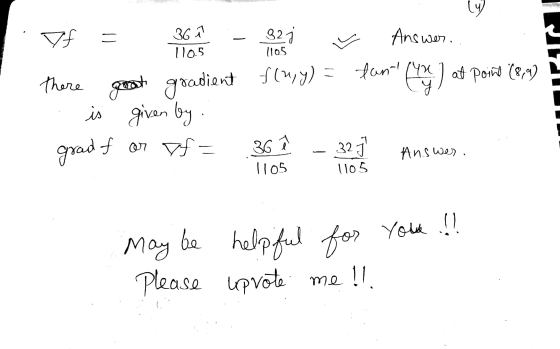 (y)
∇f = 36 î / 1105 - 32 j / 1105 Answer.
there gradient f(x,y) = tan⁻¹ (4x/y) at point (8,9)
is given by.
grad f or ∇f = 36 î / 1105 - 32 ĵ / 1105 Answer.
May be helpful for You !!
Please upvote me !!.